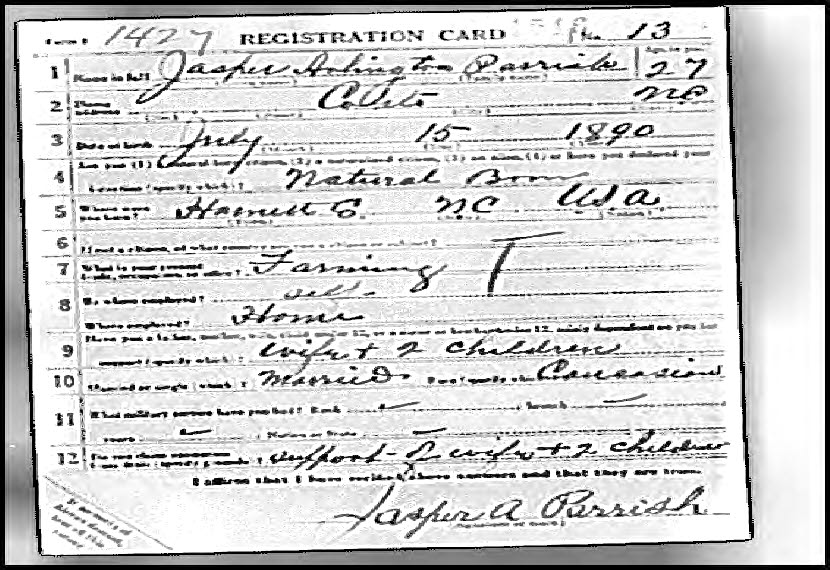 Form 1 1427 REGISTRATION CARD No. 13
1 Name in full Jasper Arlington Parrish Age, in yrs. 27
2 Home address Coats NC
3 Date of birth July 15 1890
4 Are you (1) a natural-born citizen, (2) a naturalized citizen, (3) an alien, (4) or have you declared your
intention (specify which)? Natural Born
5 Where were you born? Harnett C. NC USA
6 If not a citizen, of what country are you a citizen or subject?
7 What is your present trade, occupation, or office? Farming
8 By whom employed? self
Where employed? Home
9 Have you a father, mother, wife, child under 12, or a sister or brother under 12, solely dependent on you for
support (specify which)? wife + 2 children
10 Married or single (which)? Married Race (specify which)? Caucasian
11 What military service have you had? Rank branch
years Nation or State
12 Do you claim exemption from draft (specify grounds)? support of wife + 2 children
I affirm that I have verified above answers and that they are true.
Jasper A Parrish